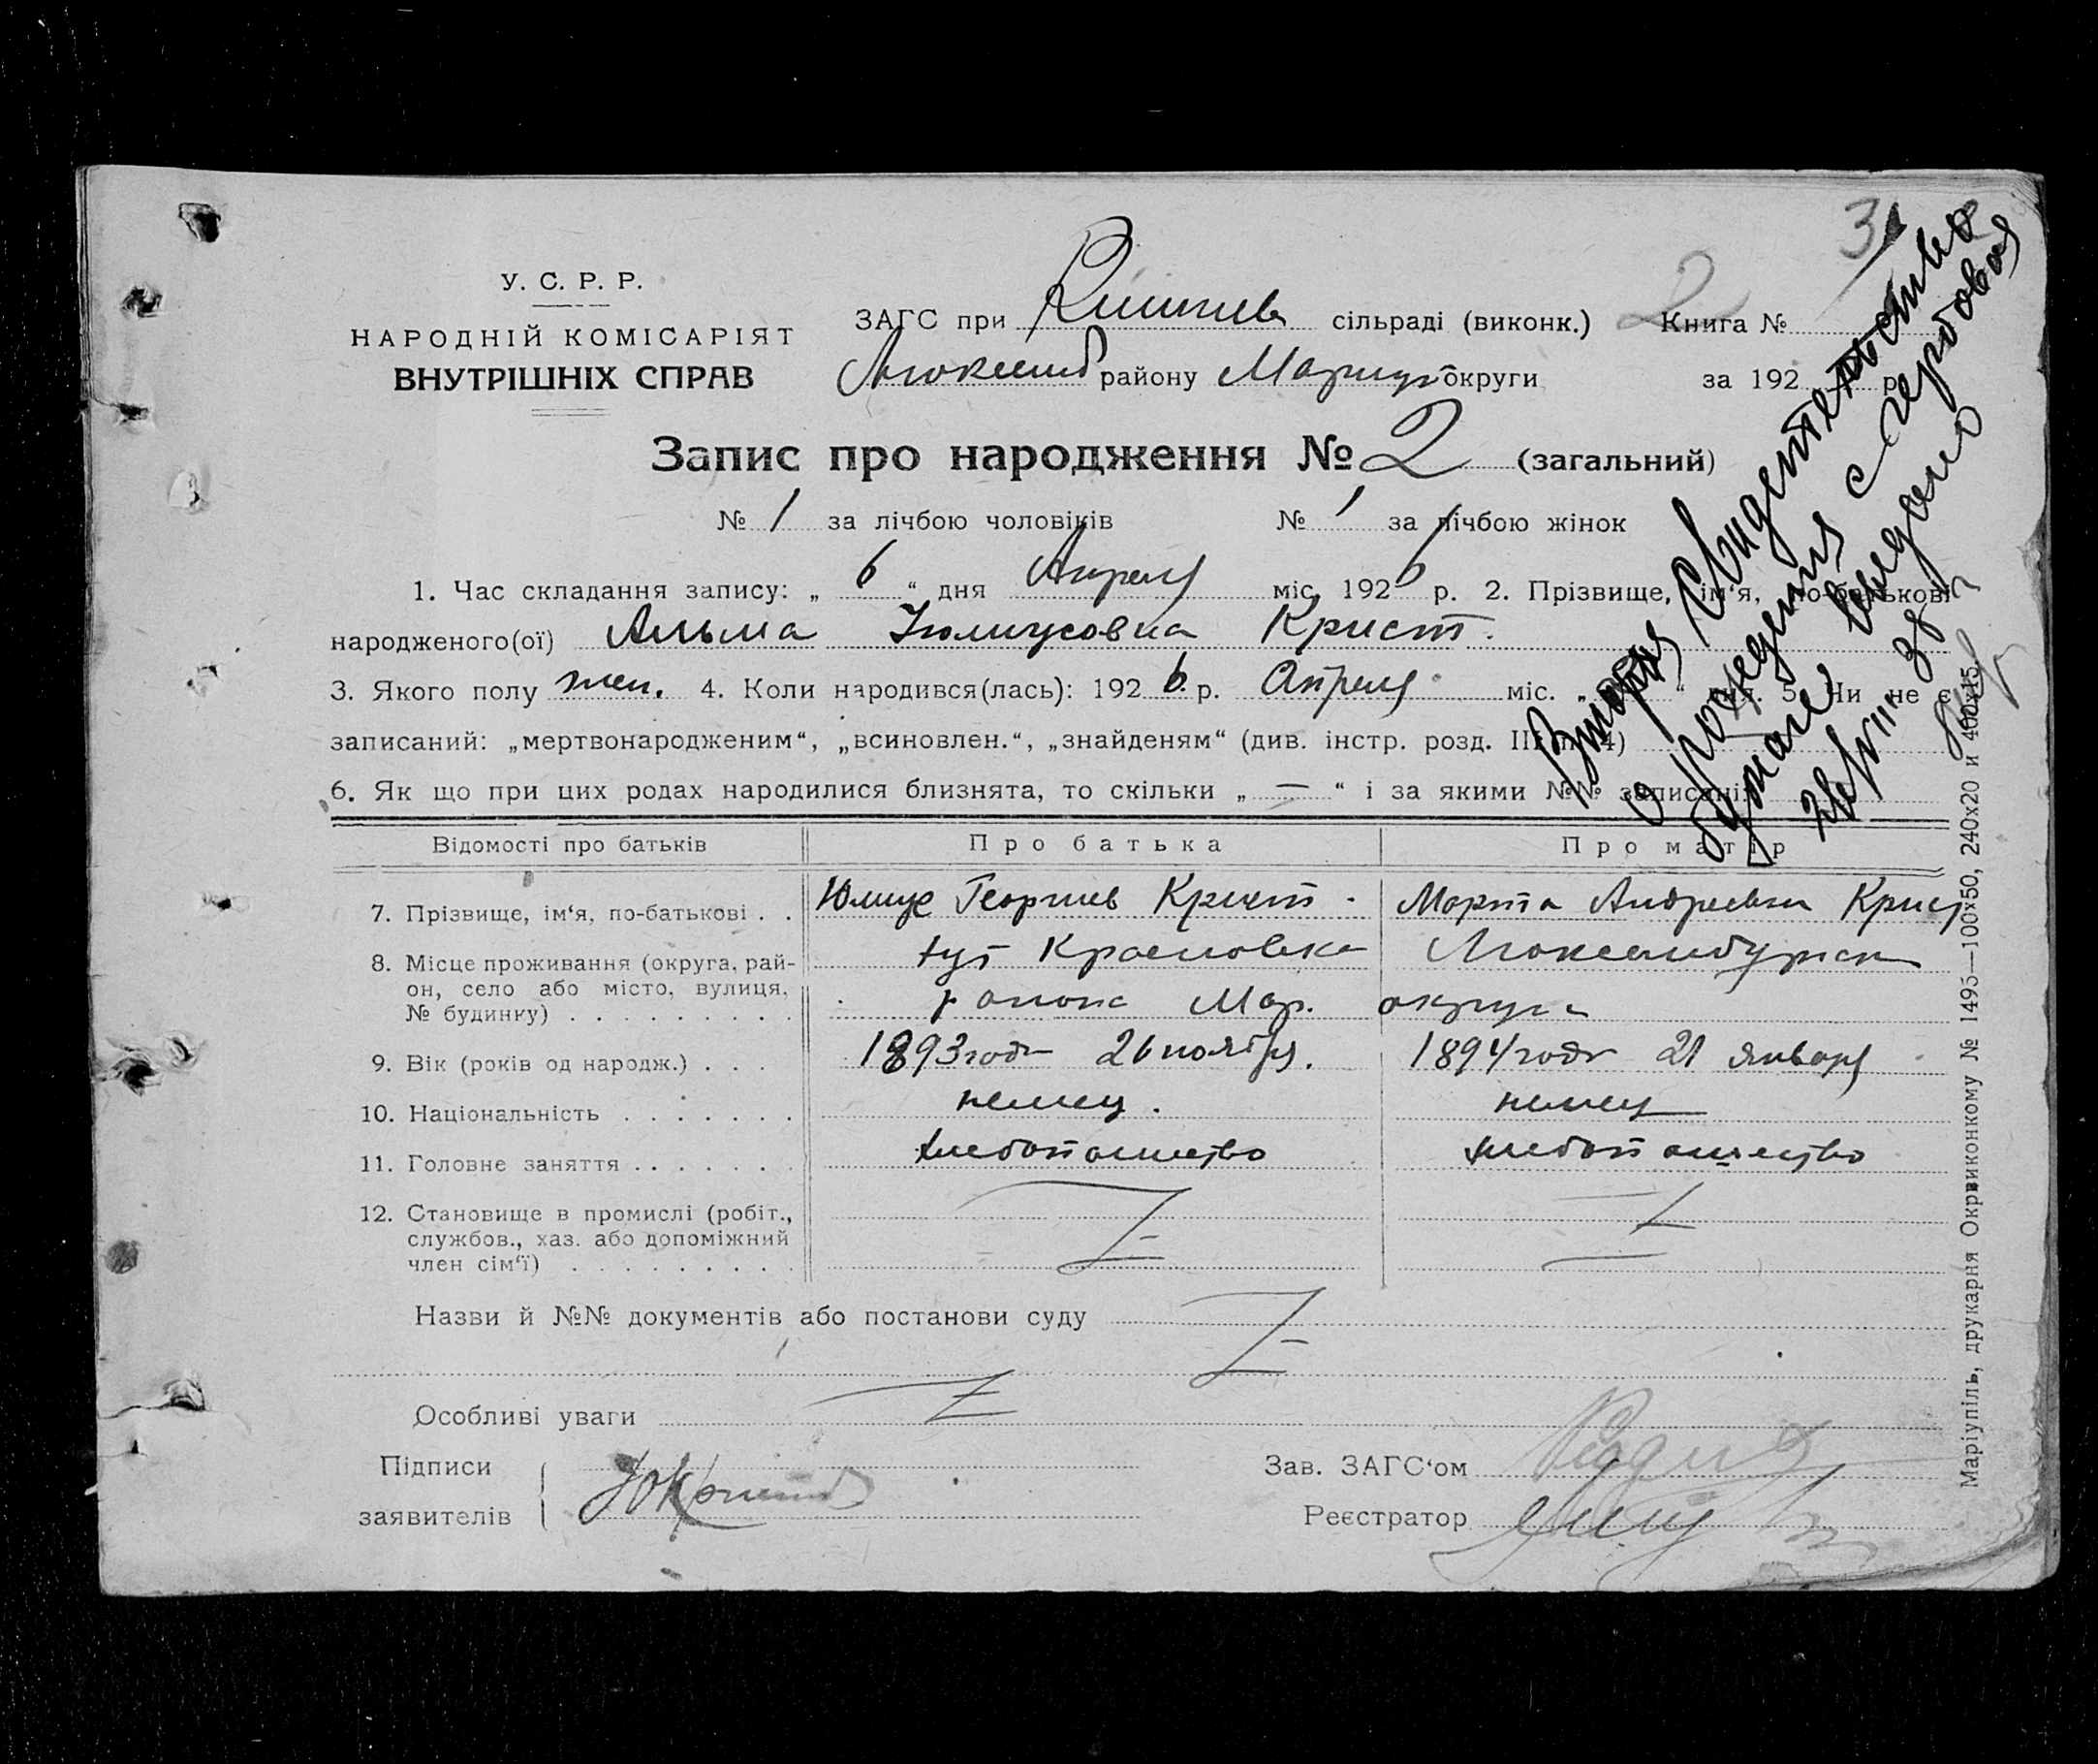 У. С. Р. Р.
НАРОДНІЙ КОМІСАРІЯТ
ВНУТРІШНІХ СПРАВ
ЗАГС при сільраді (виконк.) Книга №
Люксемб району Мариуп округи за 192 р.
2
3
Запис про народження № 2 (загальний)
№ 1 за лічбою чоловіків № 1 за лічбою жінок
1. Час складання запису: „ 6 “ дня Апреля міс. 1926 р. 2. Прізвище, ім‘я, по-батькові
народженого(ої) Альма Юлиусовна Крист.
3. Якого полу жен. 4. Коли народився(лась): 1926 р. Апреля міс. „ “ дня. 5. Чи не є
записаний: „мертвонародженим“, „всиновлен.“, „знайденям“ (див. інстр. розд. III п. 4)
6. Як що при цих родах народилися близнята, то скільки „ — “ і за якими №№ записані
Вторич свидетельство
о рождении с гербовой
бумаге выдано
Відомості про батьків Про батька Про матір
7. Прізвище, ім‘я, по-батькові . . Юлиус Георгиев Крист. Марта Андреевна Крист
8. Місце проживання (округа, рай- хут Красновка Люксембургск
он, село або місто, вулиця, района Мар. округи
№ будинку) . . . . . . . . .
9. Вік (років од народж.) . . . 1893 года 26 ноября. 1894 года 21 января
10. Національність . . . . . . . немец. немец
11. Головне заняття . . . . . . . хлебопашество хлебопашество
12. Становище в промислі (робіт.,
службов., хаз. або допоміжний
член сім‘ї) . . . . . . . . .
Назви й №№ документів або постанови суду
Особливі уваги
Підписи Зав. ЗАГС‘ом
заявителів ЮКрист Реєстратор
Маріупіль, друкарня Окрвиконкому № 1495—100×50, 240×20 и 400×15.